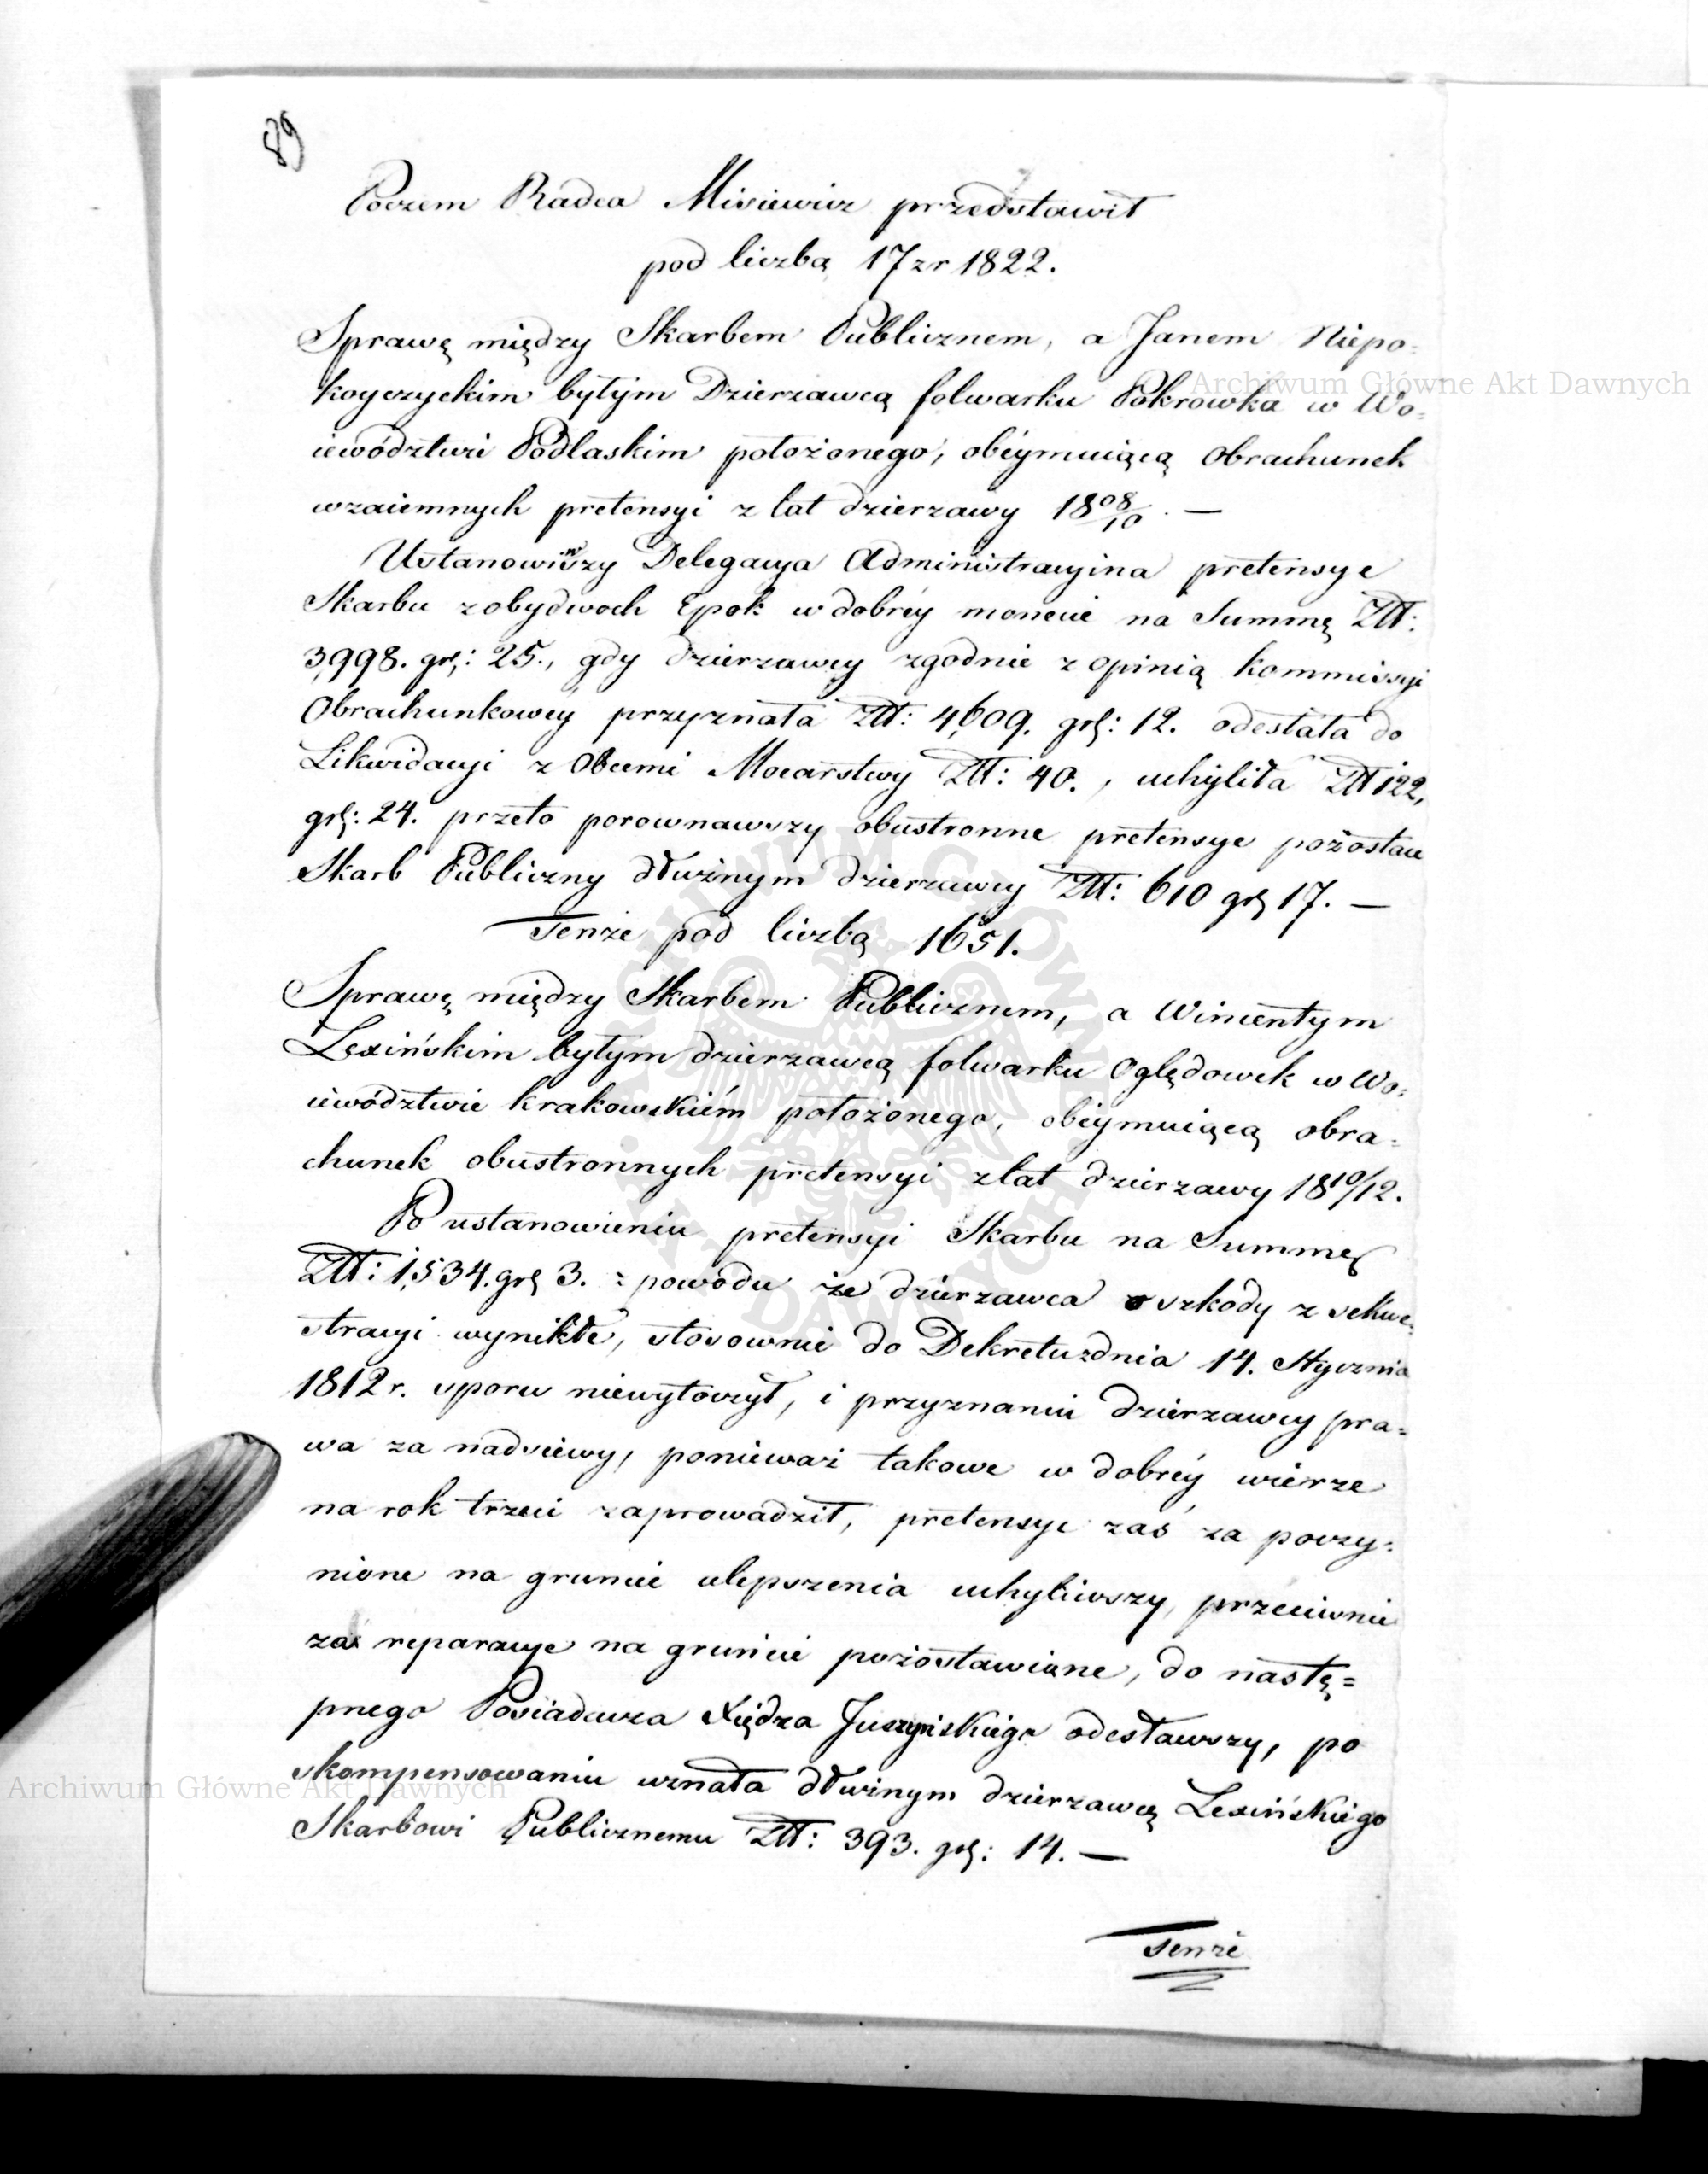 89
Poczem Radca Misiewicz przedstawił
pod liczbą 17 z r 1822.
Sprawę między Skarbem Publicznem, a Janem Niepo=
koyczyckim byłym Dzierzawcą folwarku Pokrowka w Wo=
iewództwie Podlaskim położonego, obéymuiącą Obrachunek
wzaiemnych pretensyi z lat dzierzawy 18 08/10. —
Ustanowiwszy Delegacya Administracyina pretensye
Skarbu z obydwoch Epok w dobréy monecie na Summę Złł:
3,998. grł: 25., gdy dzierzawcy zgodnie z opinią Kommissyi
Obrachunkowéy przyznała Złł: 4,609. grł: 12. odesłała do
Likwidacyi z Obcemi Mocarstwy Złł: 40., uchyliła Złł 122,
grł: 24. przeto porownawszy obustronne pretensye pozostaie
Skarb Publiczny dłużnym dzierzawcy Złł: 610 grł 17. —
Tenże pod liczbą 1651.
Sprawę między Skarbem Publicznem, a Wincentym
Lexińskim byłym dzierzawcą folwarku Oględowek w Wo=
iewództwie Krakowskiém położonego, obéymuiącą obra=
chunek obustronnych pretensyi z lat dzierzawy 18 10/12.
Po ustanowieniu pretensyi Skarbu na Summę
Złł: 1,534. grł 3. z powodu że dzierzawca o szkody z sekwe=
stracyi wynikłe, stosownie do Dekretu z dnia 14. Stycznia
1812 r. sporu niewytoczył, i przyznaniu dzierzawcy pra=
wa za nadsiewy, ponieważ takowe w dobréy wierze
na rok trzeci zaprowadził, pretensye zaś za poczy=
nione na gruncie ulepszenia uchyliwszy, przeciwnie
zaś reparacye na gruncie pozostawione, do nastę=
pnego Posiadacza Xiędza Juszyńskiego odesławszy, po
skompensowaniu uznała dłużnym dzierzawcę Lexińskiego
Skarbowi Publicznemu Złł: 393. grł: 14. —
Tenże
Archiwum Główne Akt Dawnych
Archiwum Główne Akt Dawnych
ARCHIWUM GŁÓWNE AKT DAWNYCH